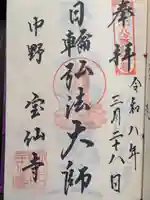 奉拝
令和八年
三月二十八日
日輪弘法大師
中野
宝仙寺